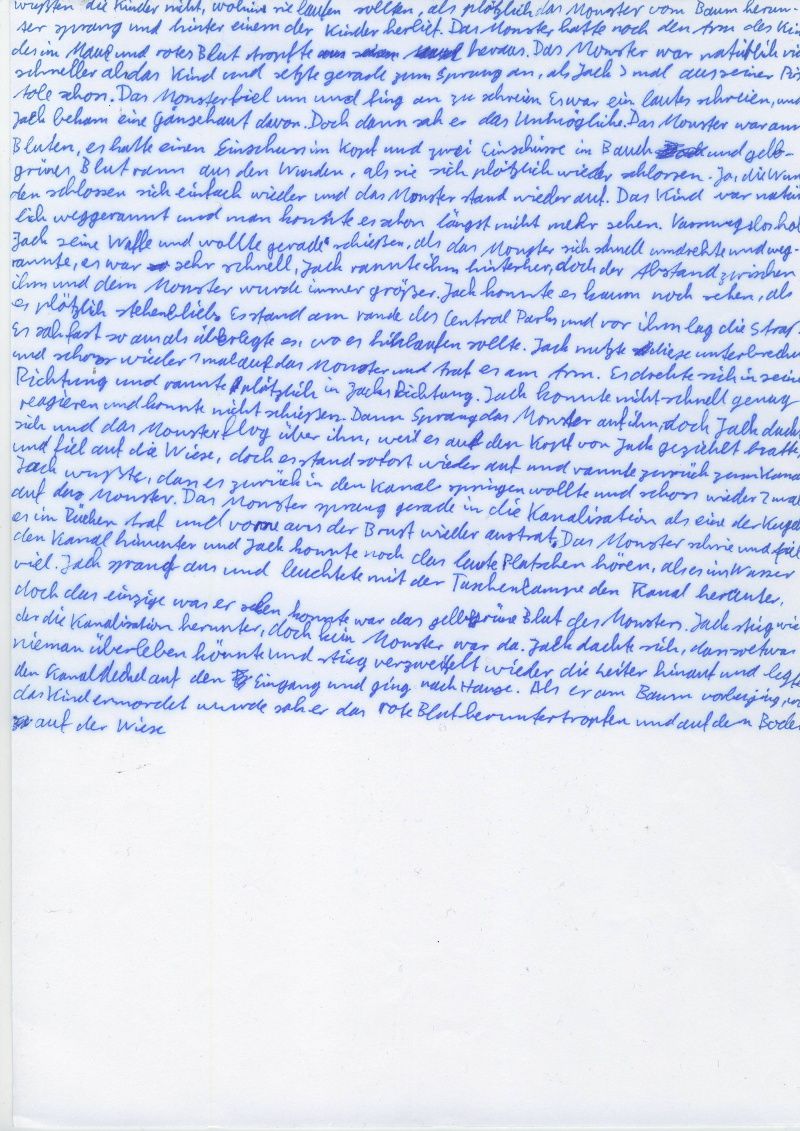 wußten die Kinder nicht, wohin sie laufen sollten, als plötzlich das Monster vom Baum herun-
ter sprang und hinter einem der Kinder herlief. Das Monster hatte noch den Arm des Kin
des im Maul und rotes Blut tropfte heraus. Das Monster war natürlich vie
schneller als das Kind und setzte gerade zum Sprung an, als Jack 3 mal aus seiner Pis
tole schoss. Das Monster fiel um und fing an zu schreien. Es war ein lautes schreien, und
Jack bekam eine Gänsehaut davon. Doch dann sah er das Unmögliche. Das Monster war am
Bluten, es hatte einen Einschuss im Kopf und zwei Einschüsse im Bauch und gelb-
grünes Blut rann aus den Wunden, als sie sich plötzlich wieder schlossen. Ja, die Wun
den schlossen sich einfach wieder und das Monster stand wieder auf. Das Kind war natür
lich weggerannt und man konnte es schon längst nicht mehr sehen. Fassungslos hol
Jack seine Waffe und wollte gerade schießen, als das Monster sich schnell umdrehte und weg-
rannte, es war sehr schnell, Jack rannte ihm hinterher, doch der Abstand zwischen
ihm und dem Monster wurde immer größer. Jack konnte es kaum noch sehen, als
es plötzlich stehenblieb. Es stand am rande des Central Parks und vor ihm lag die Straß
Es sah fast so aus als überlegte es, wo es hinlaufen sollte. Jack nutzte diese unterbrechu
und schoss wieder 3 mal auf das Monster und traf es am Arm. Es drehte sich in seine
Richtung und rannte plötzlich in Jacks Richtung. Jack konnte nicht schnell genug
reagieren und konnte nicht schießen. Dann Sprang das Monster auf ihn, doch Jack duck
sich und das Monster flog über ihn, weil es auf den Kopf von Jack gezielt hatte,
und fiel auf die Wiese, doch es stand sofort wieder auf und rannte zurück zum Kana
Jack wußte, dass es zurück in den Kanal springen wollte und schoss wieder 2 mal
auf das Monster. Das Monster sprang gerade in die Kanalisation als eine der Kugel
es im Rücken traf und vorne aus der Brust wieder austrat. Das Monster schrie und fiel
den Kanal hinunter und Jack konnte noch das laute Platschen hören, als es ins Wasser
viel. Jack sprang aus und leuchtete mit der Taschenlampe den Kanal herunter,
doch das einzige was er sehen konnte war das gelbgrüne Blut des Monsters. Jack stieg wie
der die Kanalisation herunter, doch kein Monster war da. Jack dachte sich, dass sowas
nieman überleben könnte und stieg verzweifelt wieder die Leiter hinauf und legte
den Kanaldeckel auf den Eingang und ging nach Hause. Als er am Baum vorbeiging, wo
das Kind ermordet wurde sah er das rote Blut heruntertropfen und auf dem Boden
auf der Wiese